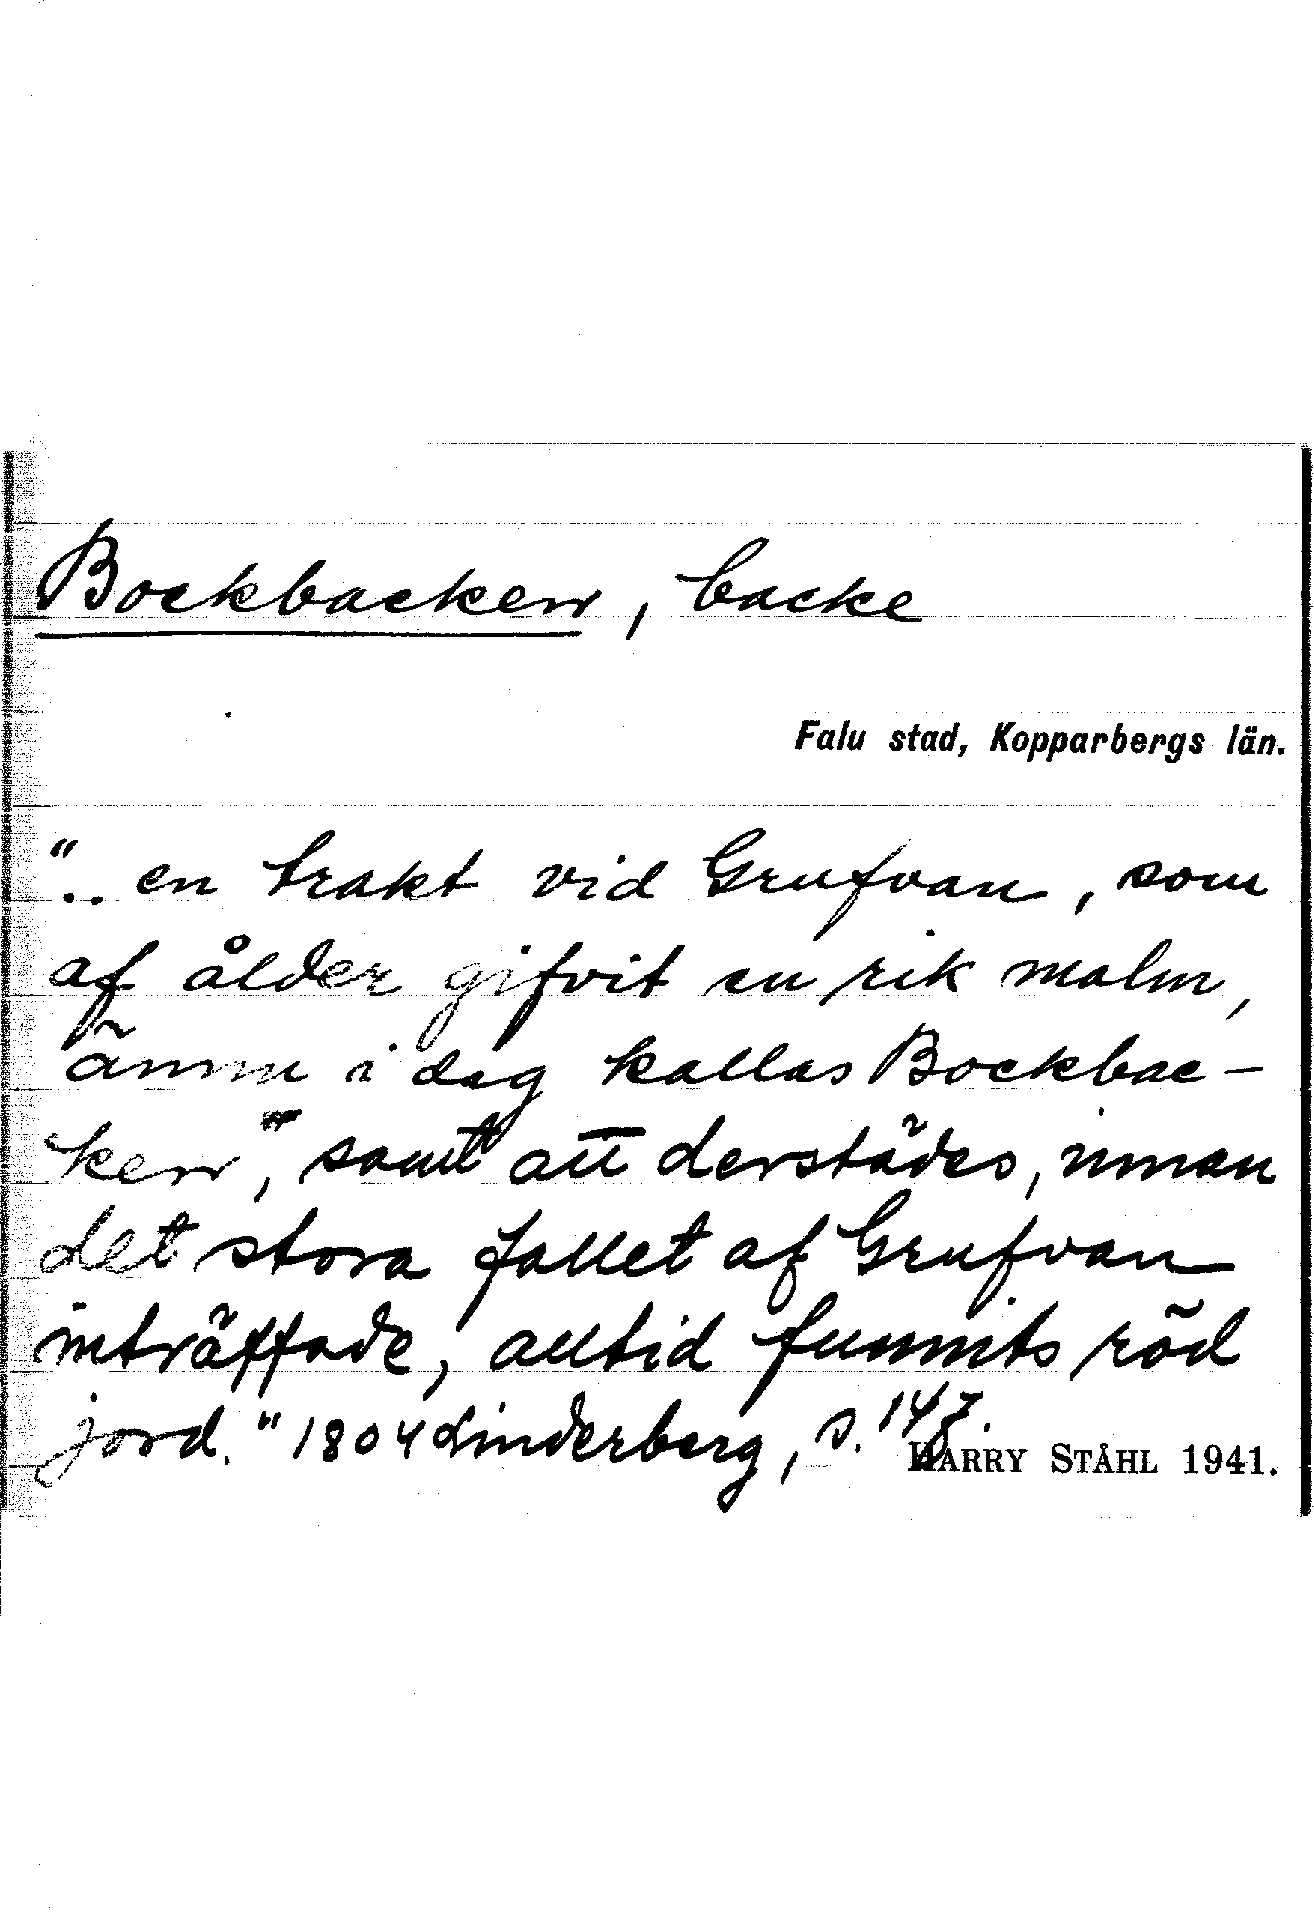 Bockbacken, backe
Falu stad, Kopparbergs län.
".. en trakt vid Grufvan, som
af ålder gifvit en rik malm,
ännu i dag kallas Bockbac-
ken", samt att derstädes, innan
det stora fallet af Grufvan
inträffade, alltid funnits röd
jord." 1804 Linderberg, s. 147.
HARRY STÅHL 1941.